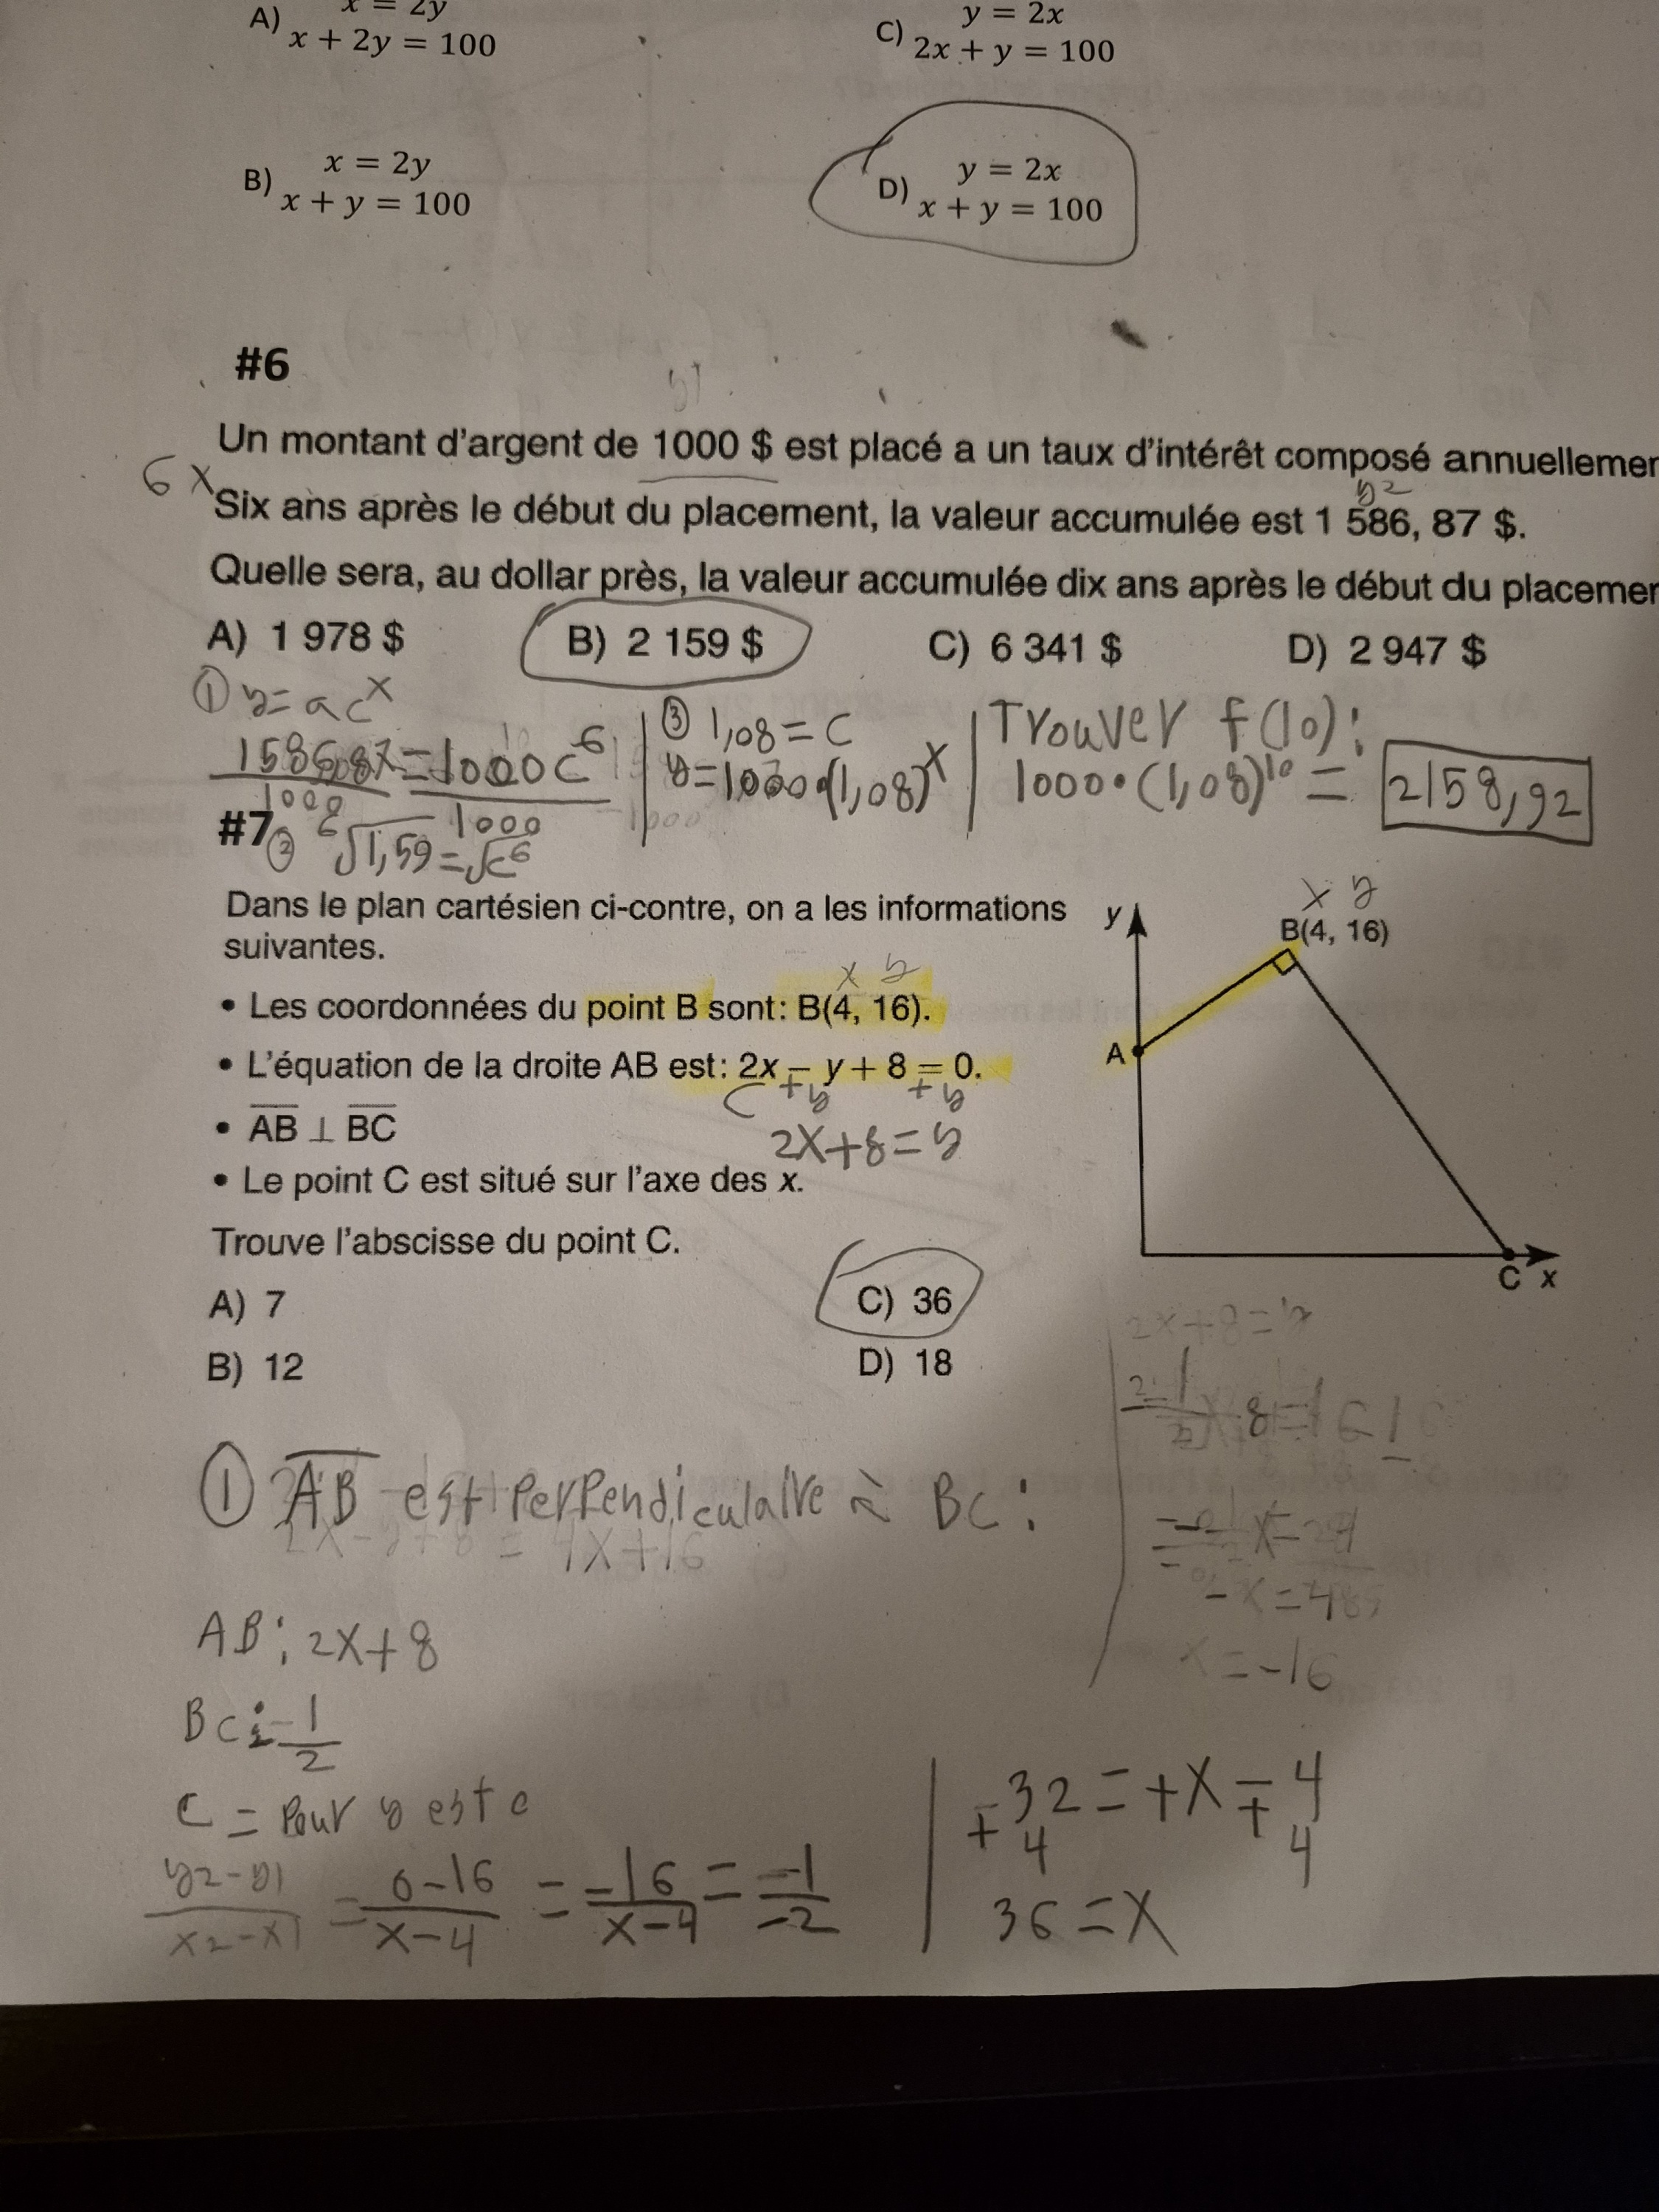 A) x = 2y
x + 2y = 100
C) y = 2x
2x + y = 100
B) x = 2y
x + y = 100
D) y = 2x
x + y = 100
#6
Un montant d'argent de 1000 $ est placé a un taux d'intérêt composé
6 x
y2
Six ans après le début du placement, la valeur accumulée est 1 586, 87 $.
Quelle sera, au dollar près, la valeur accumulée dix ans après le début du
A) 1 978 $ B) 2 159 $ C) 6 341 $ D) 2 947 $
① y = ac^x
1586,87 = 1000c^6
1000 1000
② 6√1,59 = √c^6
③ 1,08 = c
y = 1000•(1,08)^x
Trouver f(10):
1000•(1,08)^10 = 2158,92
#7
Dans le plan cartésien ci-contre, on a les informations
suivantes.
x y
• Les coordonnées du point B sont: B(4, 16).
• L'équation de la droite AB est: 2x − y + 8 = 0.
+y +y
• AB ⊥ BC
2x+8=y
• Le point C est situé sur l'axe des x.
Trouve l'abscisse du point C.
A) 7
B) 12
C) 36
D) 18
y
x y
B(4, 16)
A
C x
2x+8=y
x=-16
① AB est perpendiculaire à BC:
2x-y+8 = 4x+16
AB: 2x+8
BC: -1/2
C = pour y est 0
y2-y1/x2-x1 = 0-16/x-4 = -16/x-4 = -1/-2
-32 = +x - 4
+4 +4
36 = x